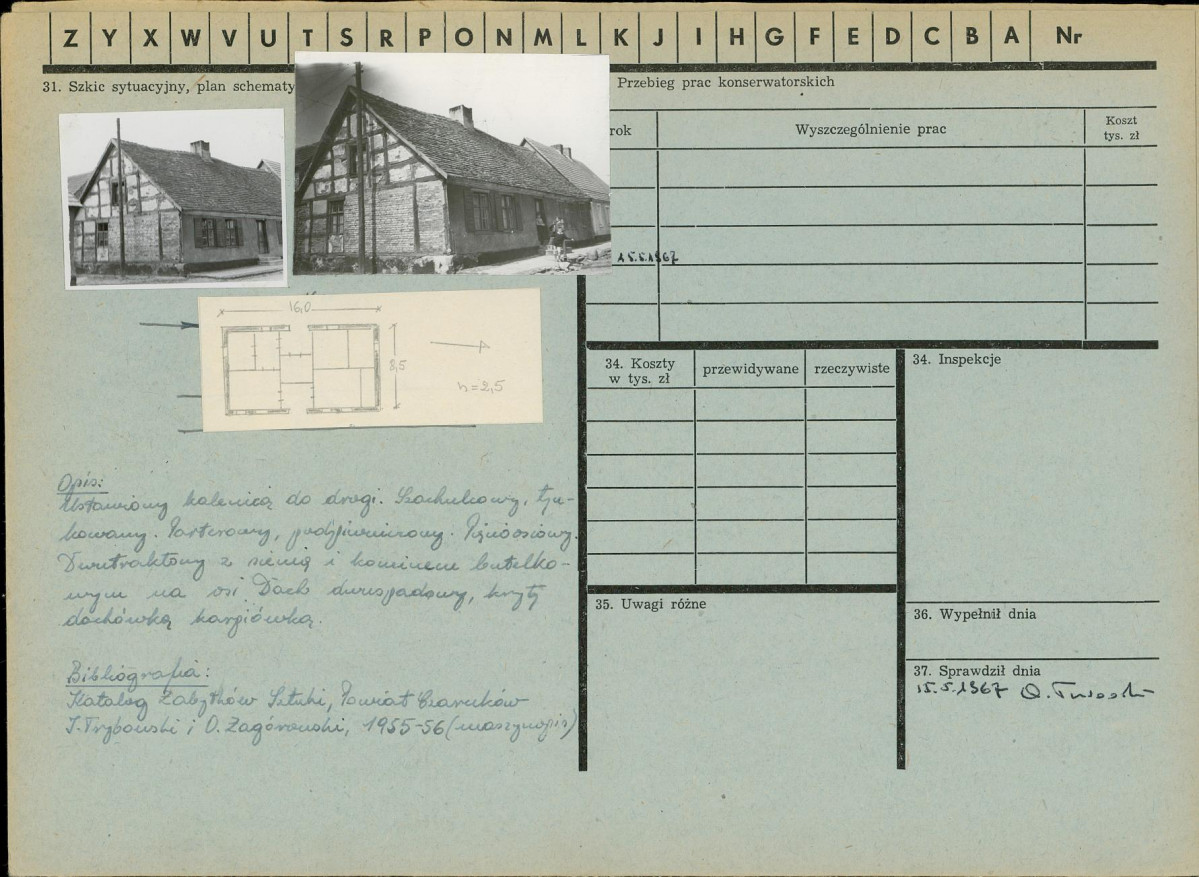 Z Y X W V U T S R P O N M L K J I H G F E D C B A Nr
31. Szkic sytuacyjny, plan schematy
Przebieg prac konserwatorskich
rok
Wyszczególnienie prac
Koszt
tys. zł
15.5.1967
16,0
8,5
h=2,5
34. Koszty
w tys. zł
przewidywane
rzeczywiste
34. Inspekcje
Opis:
Ustawiony kalenicą do drogi. Szachulcowy, tyn-
kowany. Parterowy, podpiwniczony. Pięcioosiowy.
Dwutraktowy z sienią i kominem butelko-
wym na osi. Dach dwuspadowy, kryty
dachówką karpiówką.
Bibliografia:
Katalog Zabytków Sztuki, Powiat Czarnków
J. Frybowski i O. Zagórowski, 1955-56 (maszynopis)
35. Uwagi różne
36. Wypełnił dnia
37. Sprawdził dnia
15.5.1967